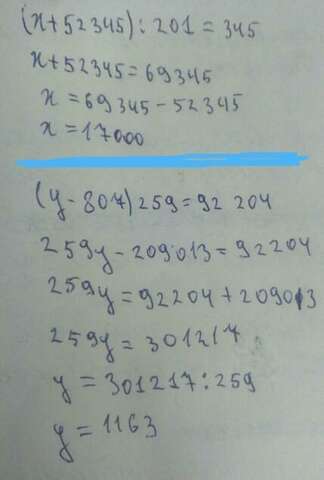 (x+52345):201=345
x+52345=69345
x=69345-52345
x=17000
(y-807)259=92 204
259y-209013=92204
259y=92204+209013
259y=301217
y=301217:259
y=1163